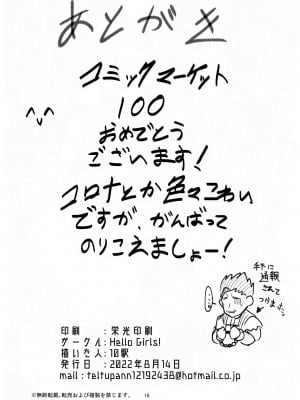 あとがき
コミックマーケット
100
おめでとう
ございます!
コロナとか色々こわい
ですが、がんばって
のりこえましょー!
^v^
手下に
通報
されて
つかまった。
印刷 : 栄光印刷
サークル : Hello Girls!
描いた人 : 10駅
発行日 : 2022年8月14日
mail : teltupann1219243B@hotmail.co.jp
※無断転載、転売および複製を禁じます。
18